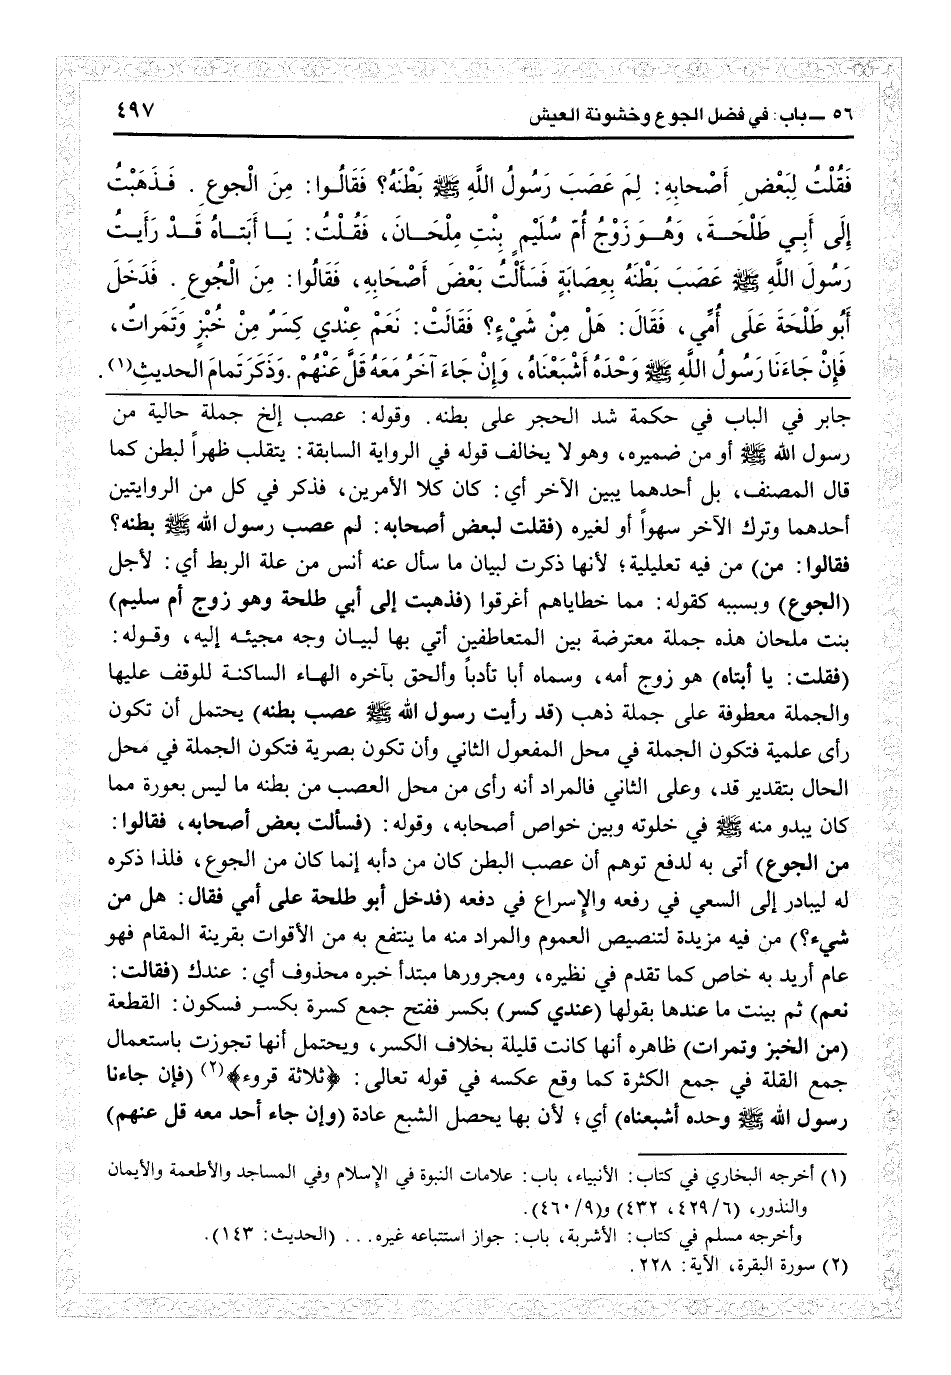 ٥٦ ـ باب: في فضل الجوع وخشونة العيش
٤٩٧
فَقُلْتُ لِبَعْضِ أَصْحابِهِ: لِمَ عَصَبَ رَسُولُ اللَّهِ ﷺ بَطْنَهُ؟ فَقَالُوا: مِنَ الْجوعِ. فَـذَهَبْتُ
إِلَى أَبِـي طَلْحَـةَ، وَهُـوَ زَوْجُ أُمِّ سُلَيْمٍ بِنْتِ مِلْحَـانَ، فَقُلْتُ: يَـا أَبَتـاهُ قَـدْ رَأَيـتُ
رَسُولَ اللَّهِ ﷺ عَصَبَ بَطْنَهُ بِعِصَابَةٍ فَسَأَلْتُ بَعْضَ أَصْحَابِهِ، فَقَالُوا: مِنَ الْجُوعِ. فَدَخَلَ
أَبُو طَلْحَةَ عَلَى أُمِّي، فَقَالَ: هَلْ مِنْ شَيْءٍ؟ فَقَالَتْ: نَعَمْ عِنْدي كِسَرٌ مِنْ خُبْزٍ وَتَمَراتٌ،
فَإِنْ جَاءَنَا رَسُولُ اللَّهِ ﷺ وَحْدَهُ أَشْبَعْنَاهُ، وَإِنْ جَاءَ آخَرُ مَعَهُ قَلَّ عَنْهُمْ. وَذَكَرَ تَمامَ الحديثِ(١).
جابر في الباب في حكمة شد الحجر على بطنه. وقوله: عصب إلخ جملة حالية من
رسول الله ﷺ أو من ضميره، وهو لا يخالف قوله في الرواية السابقة: يتقلب ظهراً لبطن كما
قال المصنف، بل أحدهما يبين الآخر أي: كان كلا الأمرين، فذكر في كل من الروايتين
أحدهما وترك الآخر سهواً أو لغيره (فقلت لبعض أصحابه: لم عصب رسول الله ﷺ بطنه؟
فقالوا: من) من فيه تعليلية؛ لأنها ذكرت لبيان ما سأل عنه أنس من علة الربط أي: لأجل
(الجوع) وبسببه كقوله: مما خطاياهم أغرقوا (فذهبت إلى أبي طلحة وهو زوج أم سليم)
بنت ملحان هذه جملة معترضة بين المتعاطفين أتي بها لبيـان وجه مجيئـه إليه، وقـوله:
(فقلت: يا أبتاه) هو زوج أمه، وسماه أبا تأدباً وألحق بآخره الهـاء الساكنـة للوقف عليها
والجملة معطوفة على جملة ذهب (قد رأيت رسول الله ﷺ عصب بطنه) يحتمل أن تكون
رأى علمية فتكون الجملة في محل المفعول الثاني وأن تكون بصرية فتكون الجملة في محل
الحال بتقدير قد، وعلى الثاني فالمراد أنه رأى من محل العصب من بطنه ما ليس بعورة مما
كان يبدو منه ﷺ في خلوته وبين خواص أصحابه، وقوله: (فسألت بعض أصحابه، فقالوا:
من الجوع) أتى به لدفع توهم أن عصب البطن كان من دأبه إنما كان من الجوع، فلذا ذكره
له ليبادر إلى السعي في رفعه والإسراع في دفعه (فدخل أبو طلحة على أمي فقال: هل من
شيء؟) من فيه مزيدة لتنصيص العموم والمراد منه ما ينتفع به من الأقوات بقرينة المقام فهو
عام أريد به خاص كما تقدم في نظيره، ومجرورها مبتدأ خبره محذوف أي: عندك (فقالت:
نعم) ثم بينت ما عندها بقولها (عندي كسر) بكسر ففتح جمع كسرة بكسـر فسكون: القطعة
(من الخبز وتمرات) ظاهره أنها كانت قليلة بخلاف الكسر، ويحتمل أنها تجوزت باستعمال
جمع القلة في جمع الكثرة كما وقع عكسه في قوله تعالى: ﴿ثلاثة قروء﴾(٢) (فإن جاءنا
رسول الله ﷺ وحده أشبعناه) أي؛ لأن بها يحصل الشبع عادة (وإن جاء أحد معه قل عنهم)
(١) أخرجه البخاري في كتاب: الأنبياء، باب: علامات النبوة في الإسلام وفي المساجد والأطعمة والأيمان
والنذور، (٤٢٩/٦، ٤٣٢) و(٤٦٠/٩).
وأخرجه مسلم في كتاب: الأشربة، باب: جواز استتباعه غيره... (الحديث: ١٤٣).
(٢) سورة البقرة، الآية: ٢٢٨.